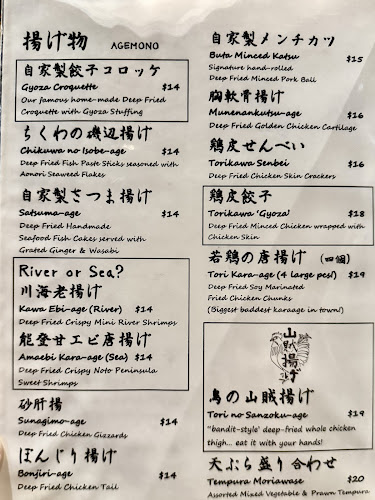 揚げ物 AGEMONO
自家製餃子コロッケ
Gyoza Croquette $14
Our famous home-made Deep Fried
Croquette with Gyoza Stuffing
ちくわの磯辺揚げ
Chikuwa no Isobe-age $14
Deep Fried Fish Paste Sticks seasoned with
Aonori Seaweed Flakes
自家製さつま揚げ
Satsuma-age $14
Deep Fried Handmade
Seafood Fish Cakes served with
Grated Ginger & Wasabi
River or Sea?
川海老揚げ
Kawa Ebi-age (River) $14
Deep Fried Crispy Mini River Shrimps
能登甘エビ唐揚げ
Amaebi Kara-age (Sea) $14
Deep Fried Crispy Noto Peninsula
Sweet Shrimps
砂肝揚
Sunagimo-age $14
Deep Fried Chicken Gizzards
ぼんじり揚げ
Bonjiri-age $14
Deep Fried Chicken Tail
自家製メンチカツ
Buta Minced Katsu $15
Signature hand-rolled
Deep Fried Minced Pork Ball
胸軟骨揚げ
Munenankutsu-age $16
Deep Fried Golden Chicken Cartilage
鶏皮せんべい
Torikawa Senbei $16
Deep Fried Chicken Skin Crackers
鶏皮餃子
Torikawa 'Gyoza' $18
Deep Fried Minced Chicken wrapped with
Chicken Skin
若鶏の唐揚げ (四個)
Tori Kara-age (4 large pcs!) $19
Deep Fried Soy Marinated
Fried Chicken Chunks
(Biggest baddest karaage in town!)
山賊揚げ
鳥の山賊揚げ
Tori no Sanzoku-age $19
"bandit-style' deep-fried whole chicken
thigh... eat it with your hands!
天ぷら盛り合わせ
Tempura Moriawase $20
Assorted Mixed Vegetable & Prawn Tempura